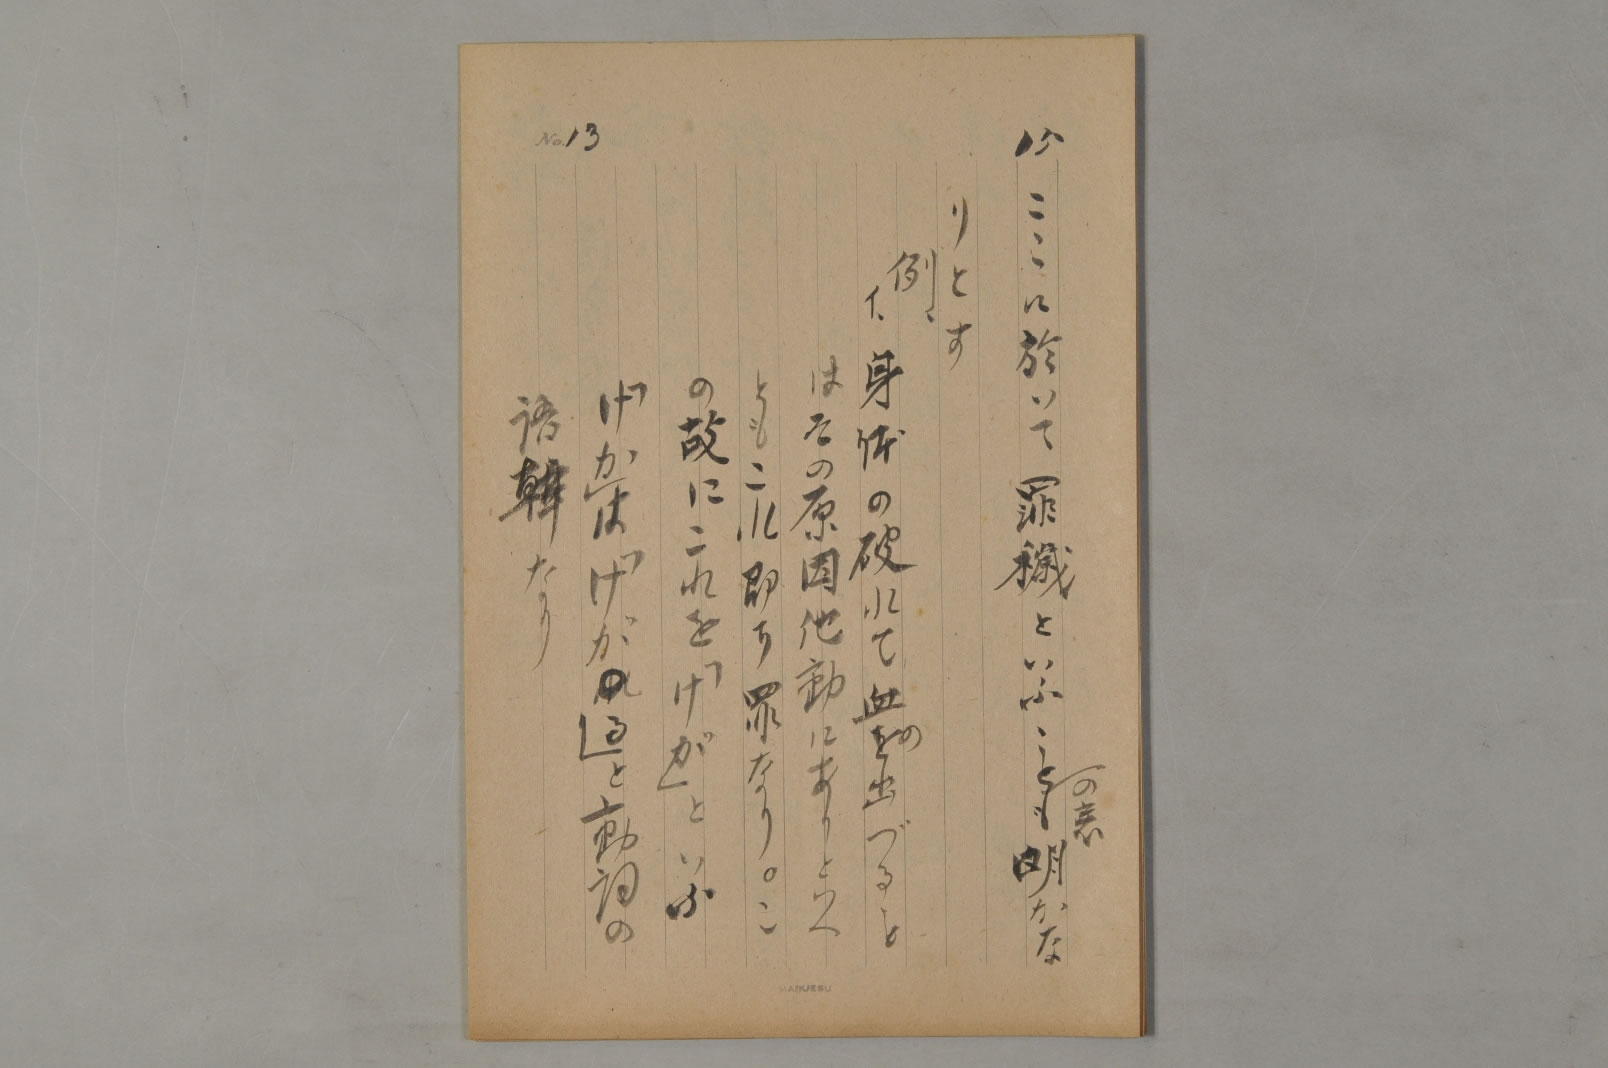 No. 13
15 ここに於いて罪穢といふことも明かな
の意
りとす
例、
イ、身体の破れて血の出づると
はその原因他動にありといへ
どもこれ即ち罪なり。こ
の故にこれを「けが」といふ
「けが」は「けがれる」と動詞の
語幹なり
MARUZEN